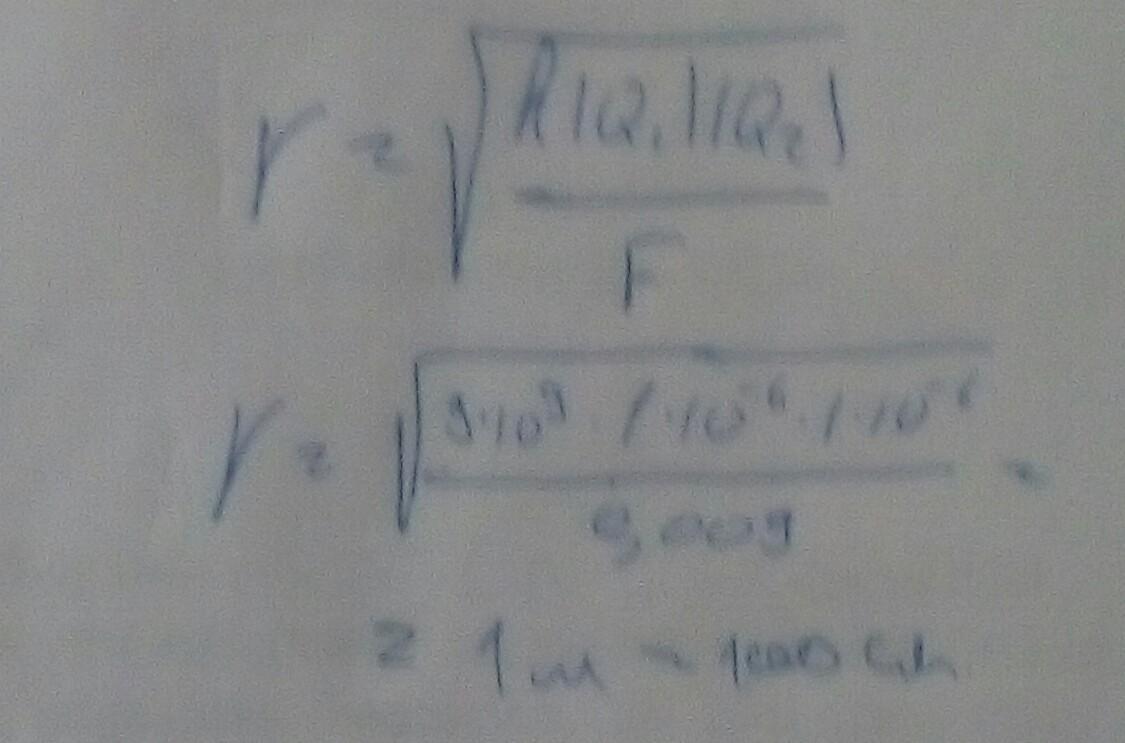 r = √(k|Q₁||Q₂| / F)
r = √(9·10⁹ · 1·10⁻⁶ · 1·10⁻⁶ / 0,009) =
= 1 м = 100 см